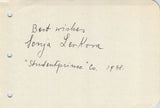 Best wishes
Sonya Levkova
"Studentprince" Co. 1931.